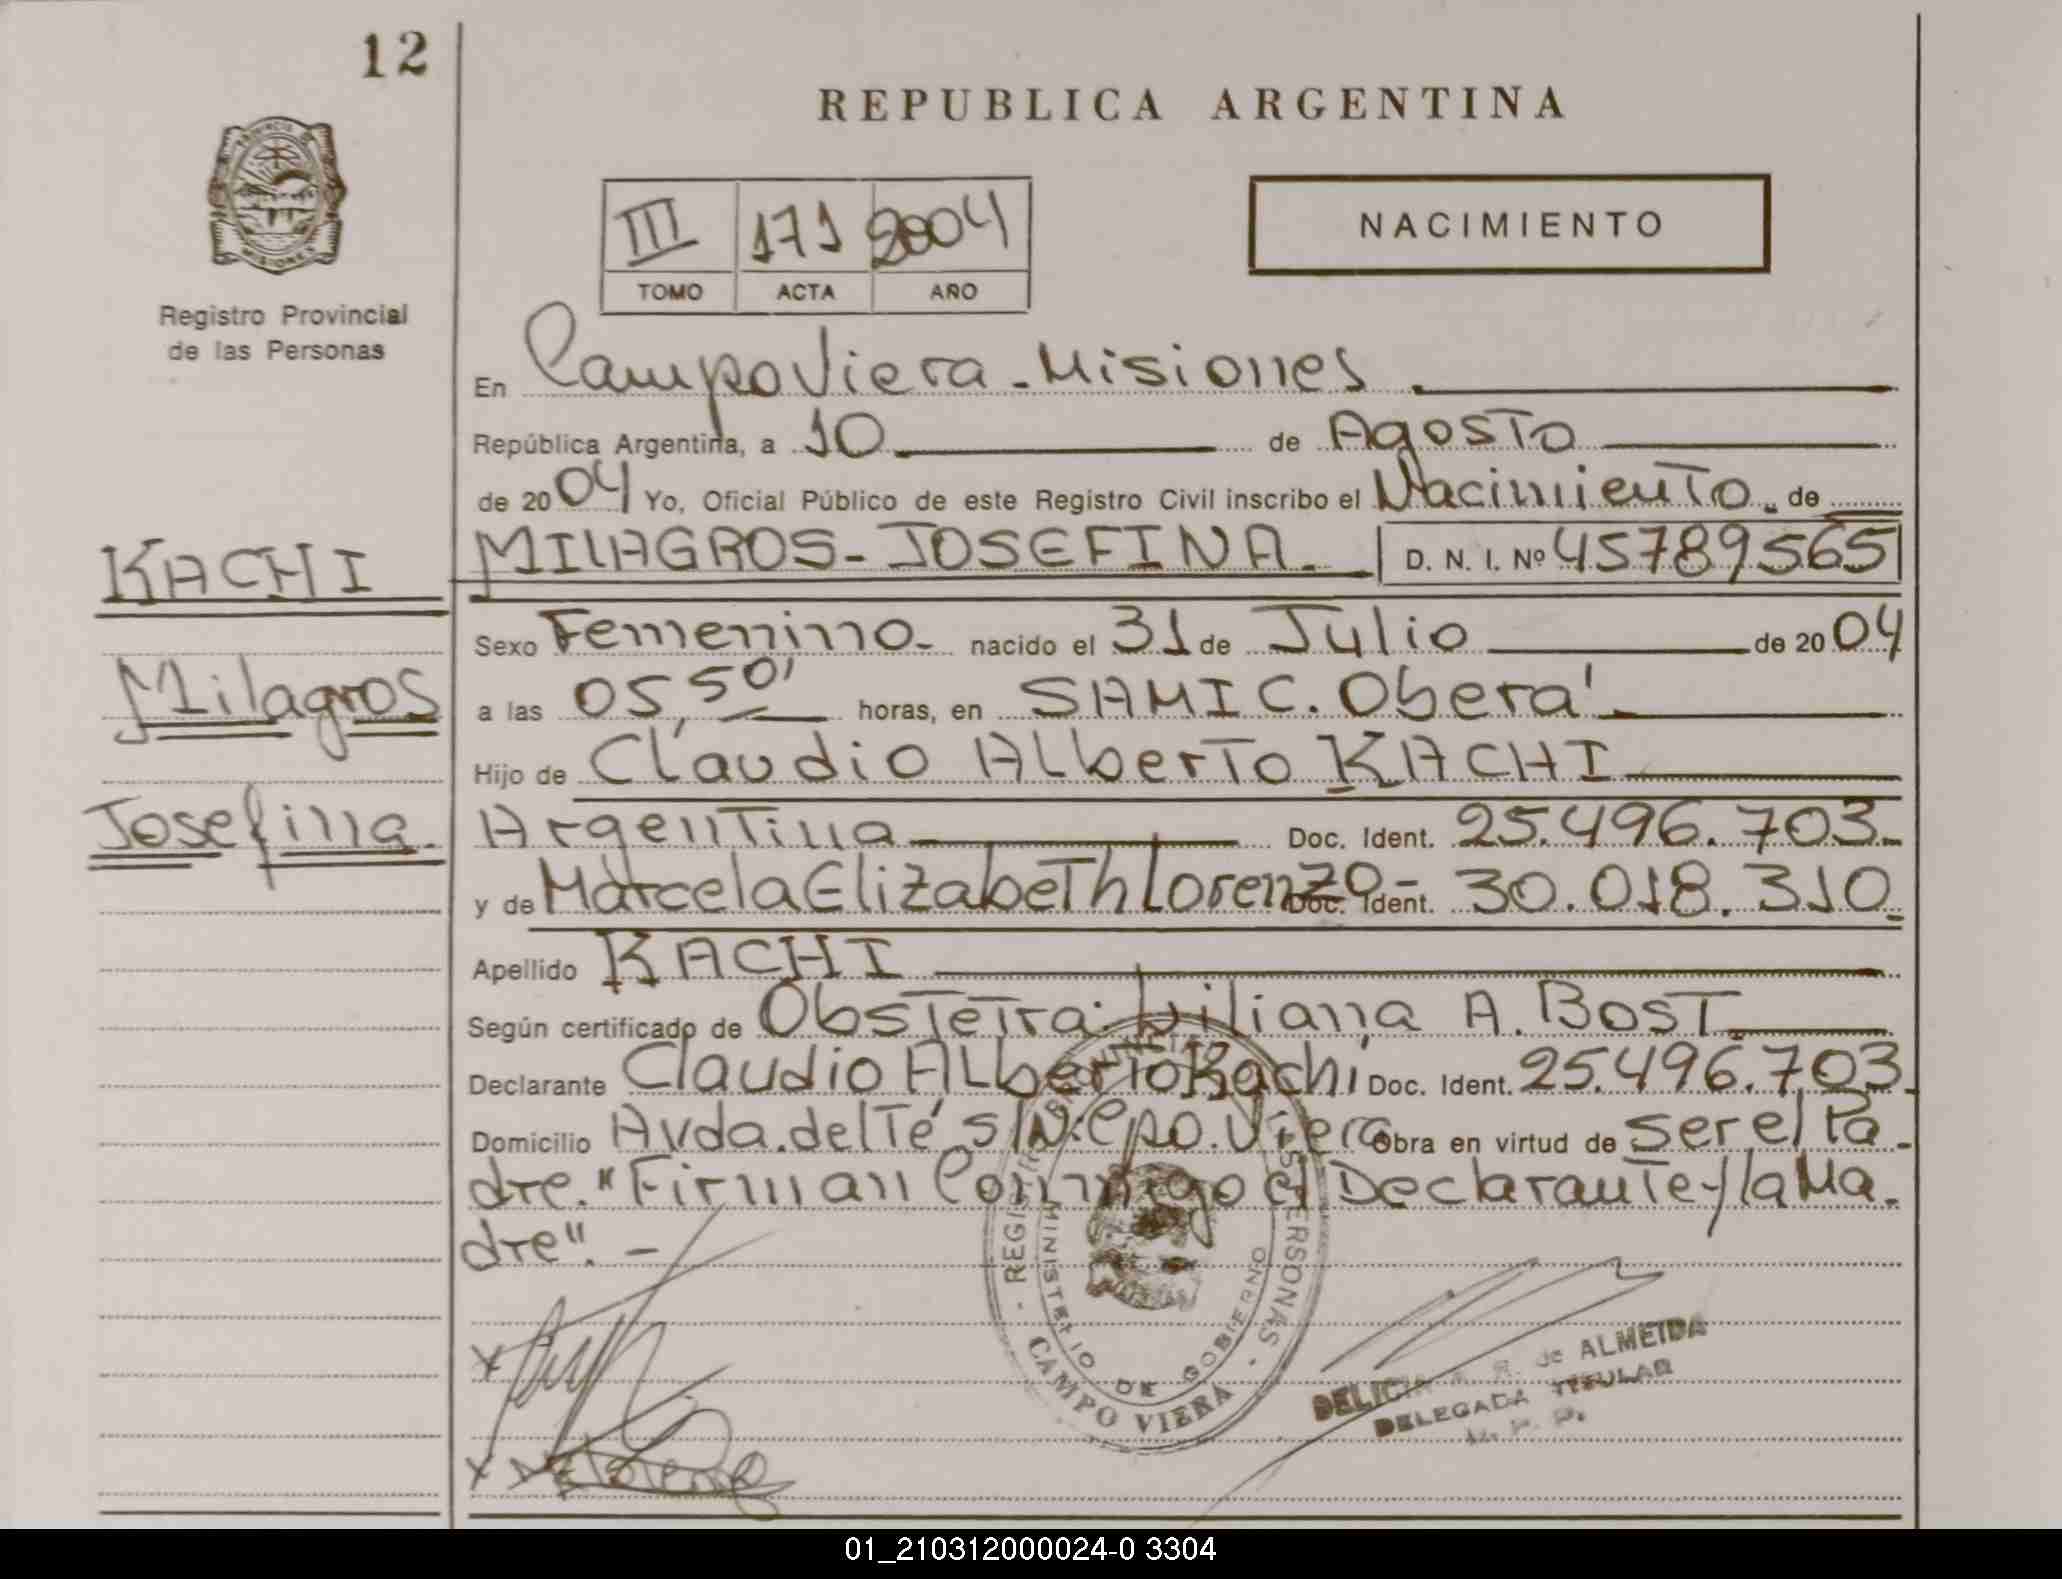 12
REPUBLICA ARGENTINA
PROVINCIA DE
MISIONES
Registro Provincial
de las Personas
III 171 2004
TOMO ACTA AÑO
NACIMIENTO
En Campo Viera - Misiones
República Argentina, a 10 de Agosto
de 2004 Yo, Oficial Público de este Registro Civil inscribo el Nacimiento de
KACHI
MILAGROS - JOSEFINA. D. N. I. Nº 45789565
Sexo Femenino - nacido el 31 de Julio de 2004
Milagros
a las 05,50' horas, en SAMIC. Oberá
Hijo de Claudio Alberto KACHI
Josefina.
Argentina Doc. Ident. 25.496.703.-
y de Marcela Elizabeth Lorenzo - Doc. Ident. 30.018.310.
Apellido KACHI
Según certificado de Obstetra: Liliana A. Bost
Declarante Claudio Alberto Kachi Doc. Ident. 25.496.703.
Domicilio Avda. del Té s/N. Cpo. Viera Obra en virtud de ser el Pa-
dre. "Firman Conmigo el Declarante y la Ma-
dre". -
REGISTRO PERSONAS
MINISTERIO DE GOBIERNO
- CAMPO VIERA -
DELICIA R. de ALMEIDA
DELEGADA TITULAR
X
X
01_210312000024-0 3304